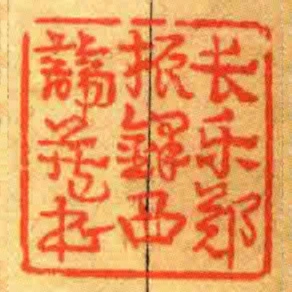 长乐郑
振铎西
谛藏书